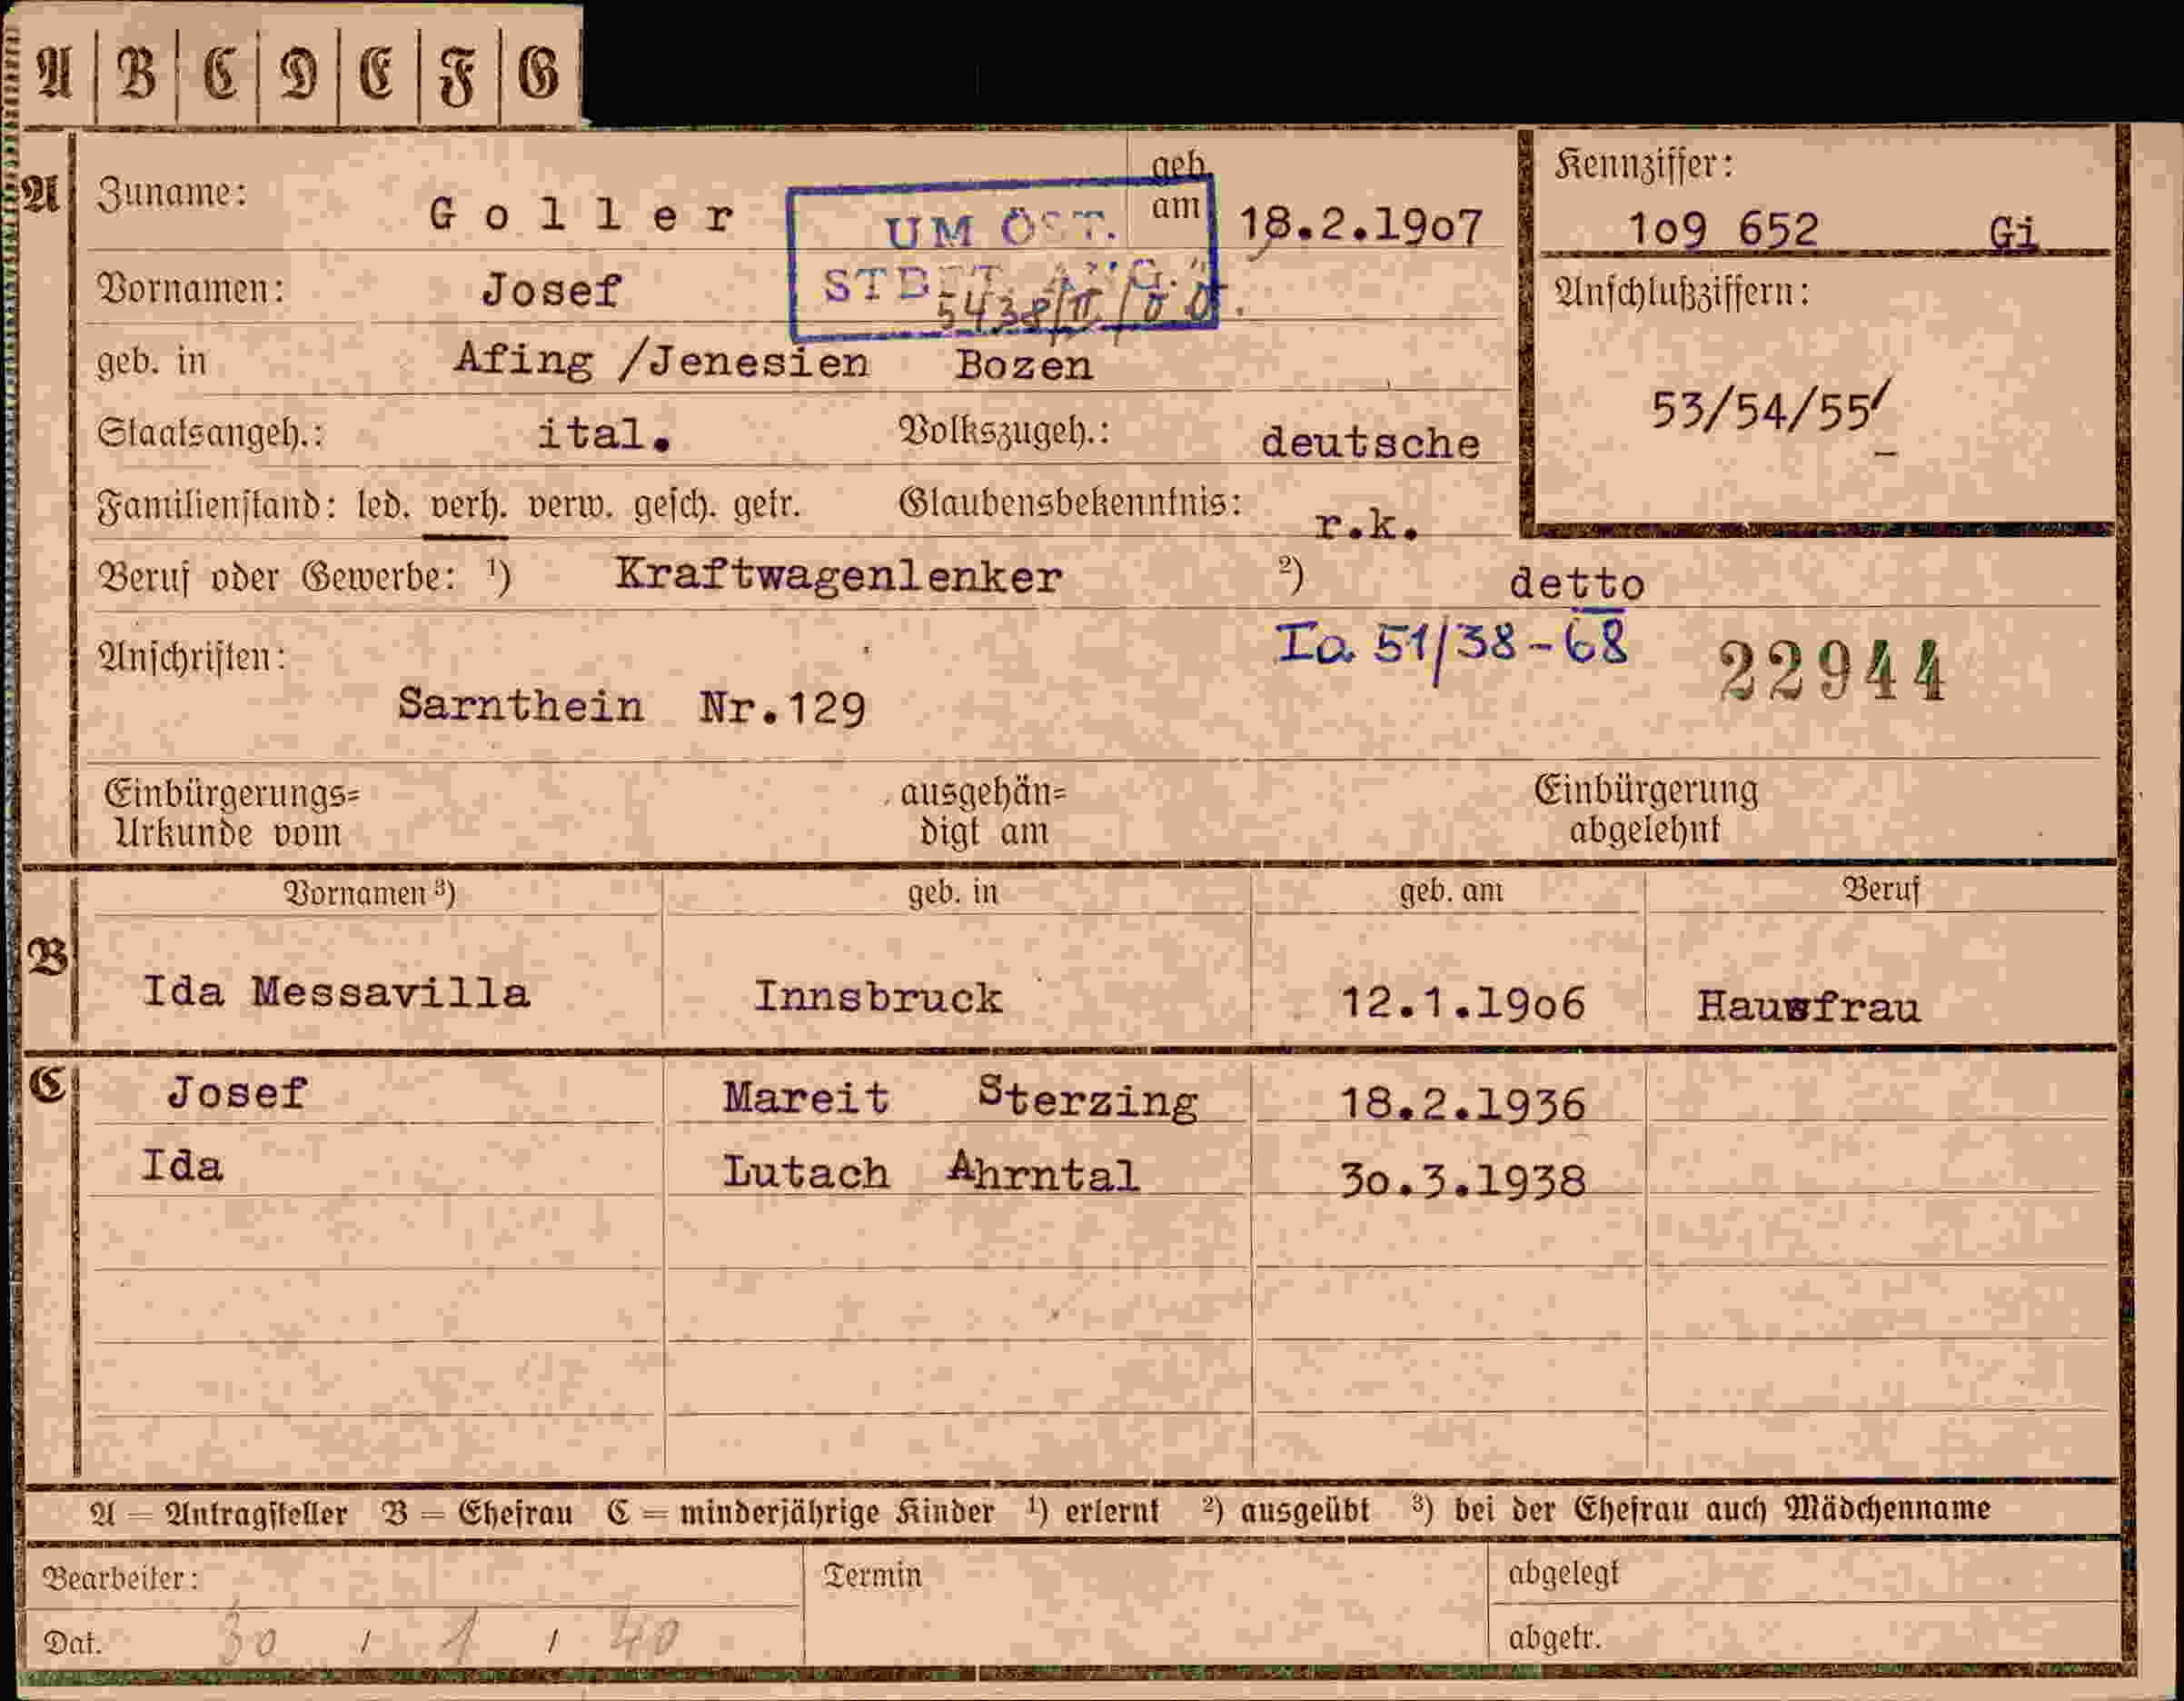 A B C D E F G
A
Zuname: Goller geb. am 18.2.1907
Kennziffer:
109 652 Gi
UM ÖST.
Vornamen: Josef
5438/II/
Anschlußziffern:
53/54/55
geb. in Afing /Jenesien Bozen
Staatsangeh.: ital. Volkszugeh.: deutsche
Familienstand: led. verh. verw. gesch. getr. Glaubensbekenntnis: r.k.
Beruf oder Gewerbe: ¹) Kraftwagenlenker ²) detto
Ia 51/38-68 22944
Anschriften:
Sarnthein Nr.129
Einbürgerungs= ausgehän= Einbürgerung
Urkunde vom digt am abgelehnt
Vornamen ³) geb. in geb. am Beruf
B
Ida Messavilla Innsbruck 12.1.1906 Hausfrau
C
Josef Mareit Sterzing 18.2.1936
Ida Lutach Ahrntal 30.3.1938
A = Antragsteller B = Ehefrau C = minderjährige Kinder ¹) erlernt ²) ausgeübt ³) bei der Ehefrau auch Mädchenname
Bearbeiter: Termin abgelegt
Dat. 30 / 1 / 40 abgetr.